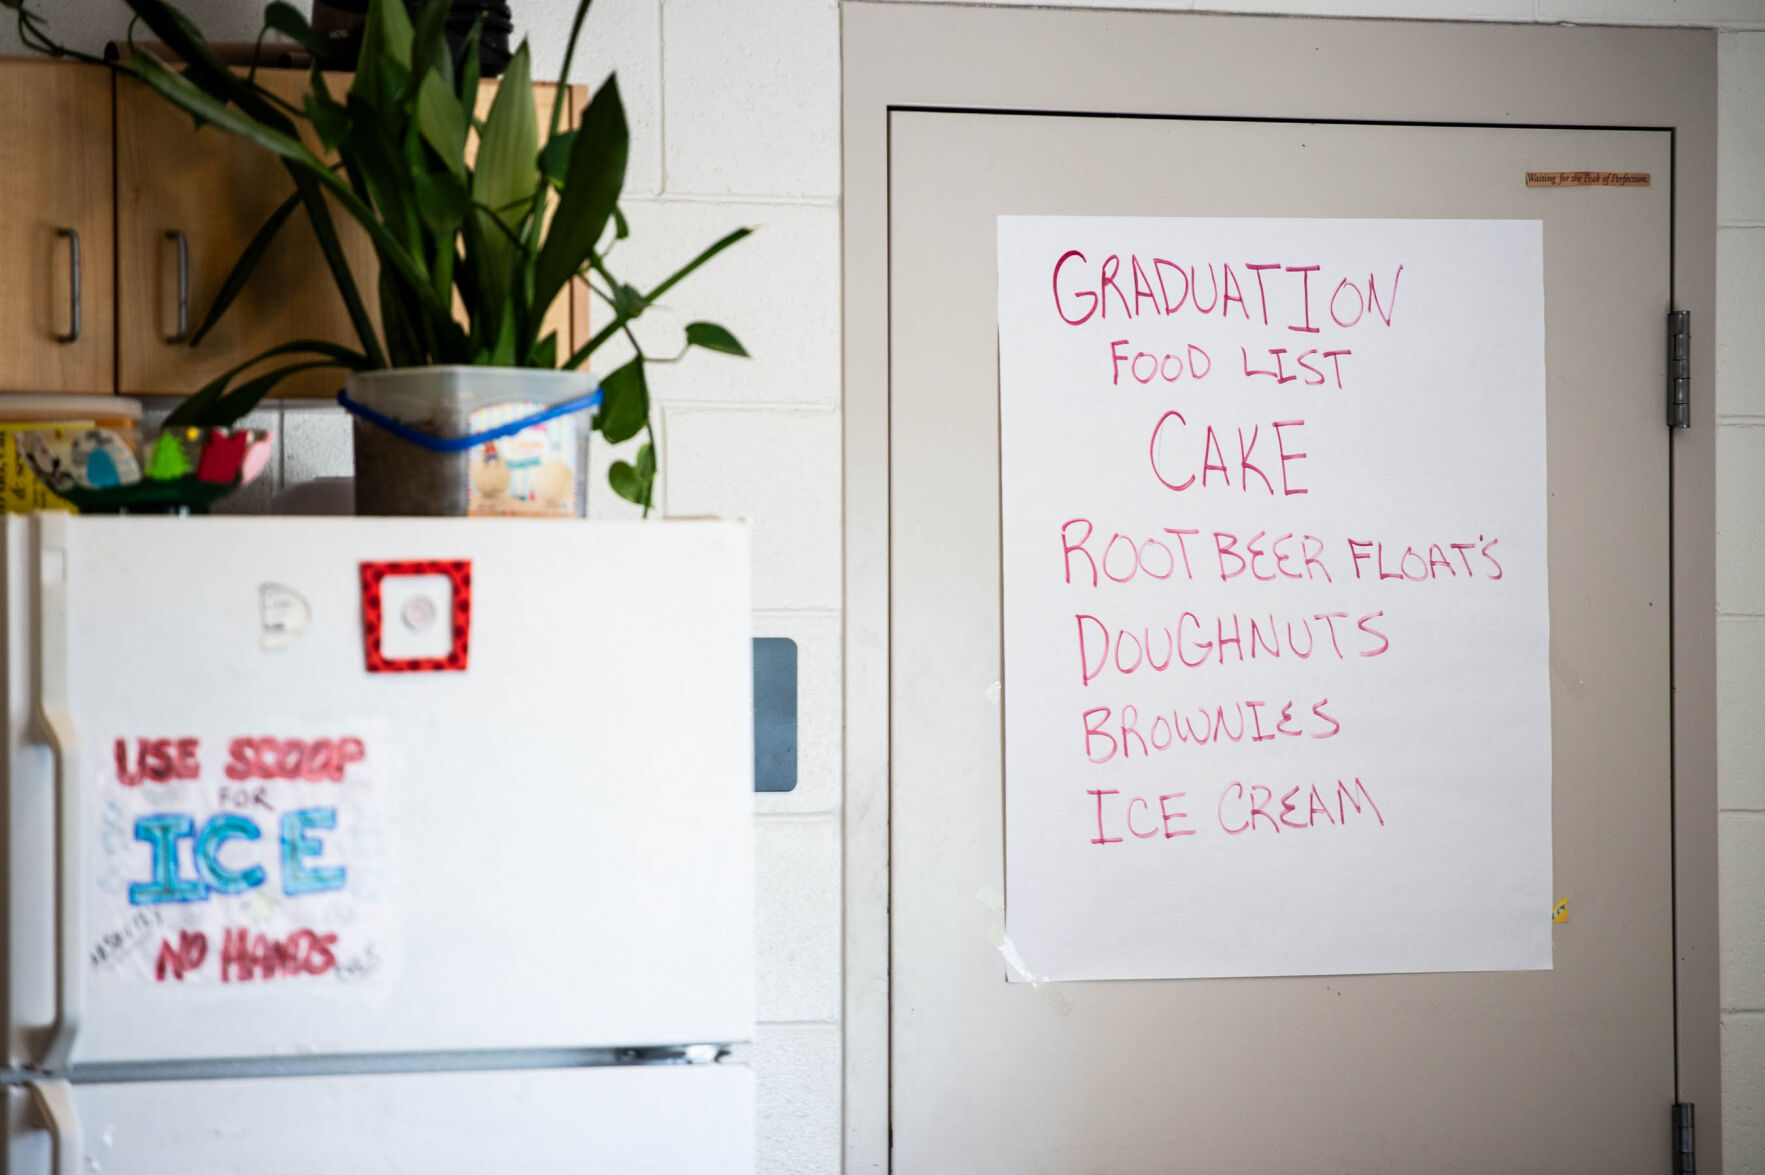 Waiting for the Peak of Perfection.
GRADUATION
FOOD LIST
CAKE
ROOT BEER FLOAT'S
DOUGHNUTS
BROWNIES
ICE CREAM
USE SCOOP
FOR
ICE
NO HANDS